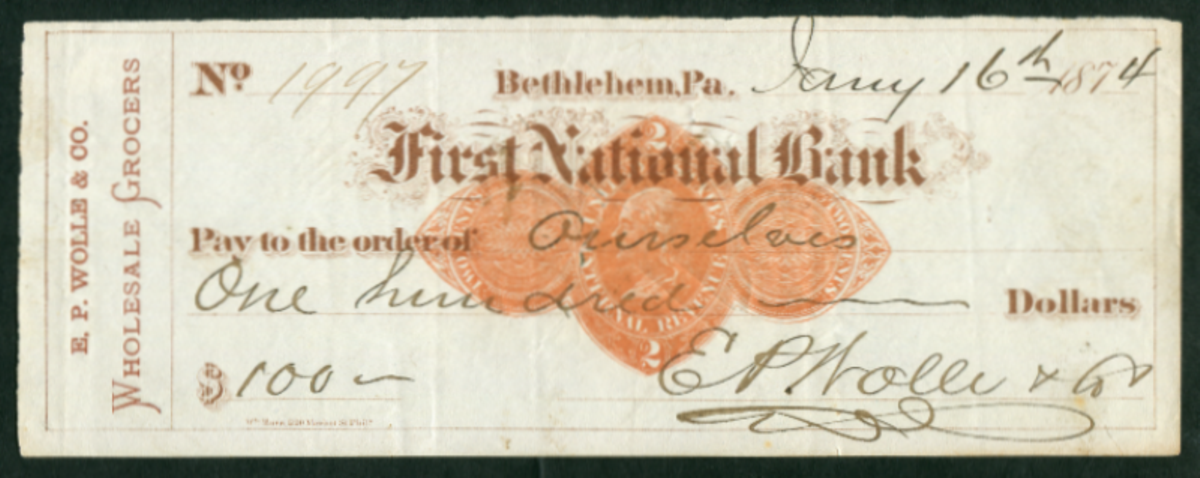 E. P. WOLLE & CO.
WHOLESALE GROCERS
No. 1997 Bethlehem, Pa. Jany 16th 1874
First National Bank
Pay to the order of Ourselves
One hundred Dollars
$100
E P. Wolle & Co
2
INTERNAL REVENUE
2